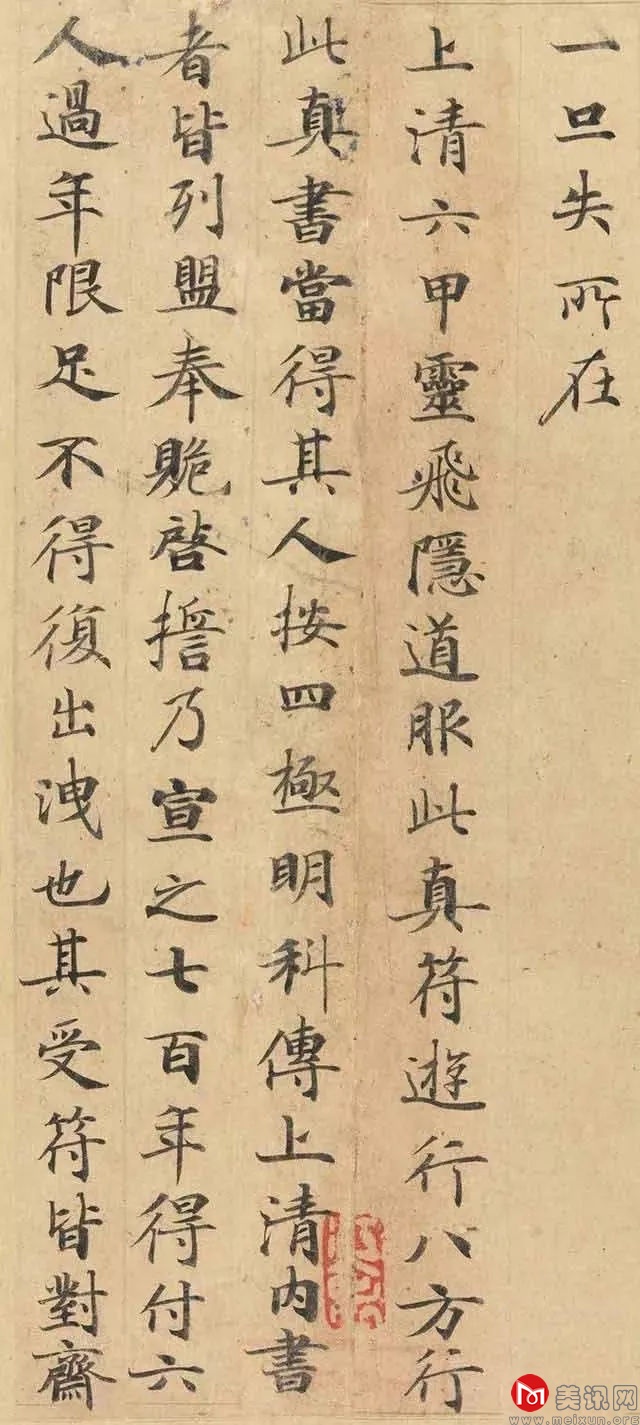 一旦失所在
上清六甲靈飛隱道服此真符遊行八方行
此真書當得其人按四極明科傳上清内書
者皆列盟奉貺啓擔乃宣之七百年得付六
人過年限足不得復出洩也其受符皆對齋
美讯网
www.meixun.org